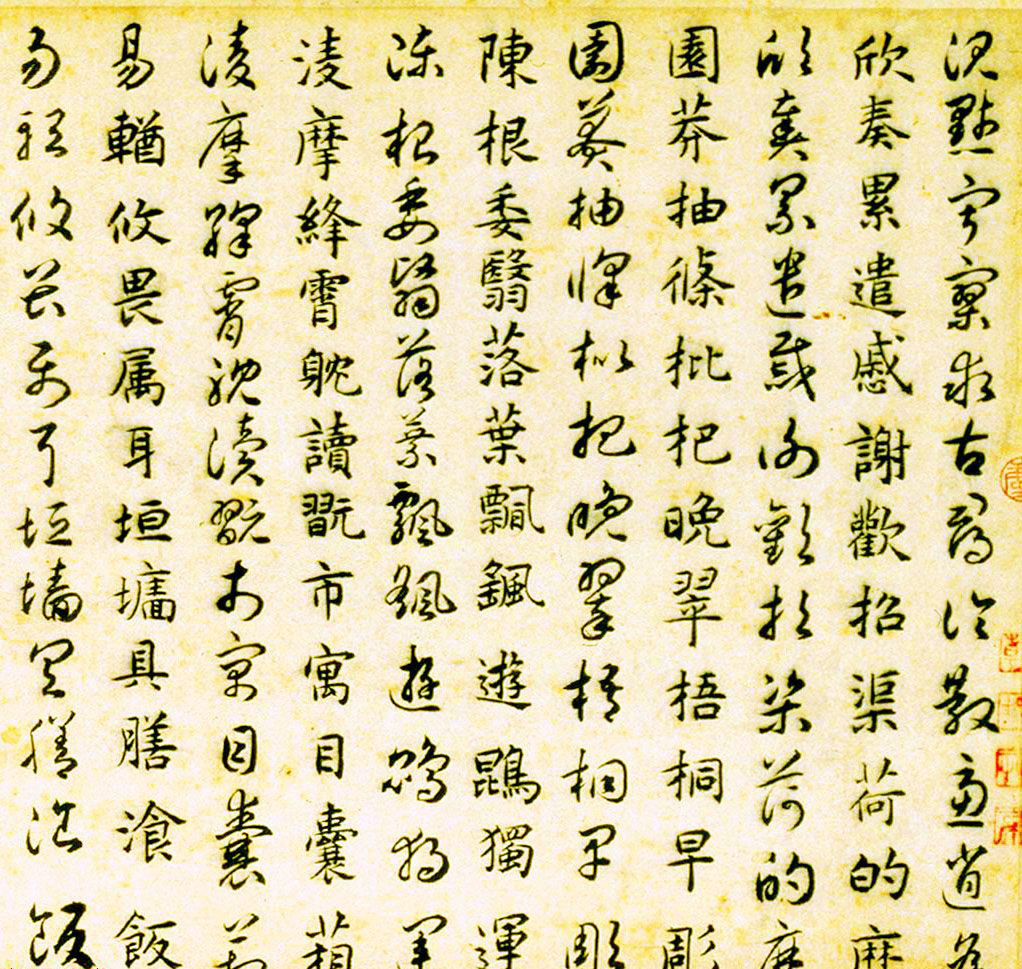 沉默寂寥求古尋論散慮逍遙
欣奏累遣慼謝歡招渠荷的歷
欣奏累遣慼謝歡招渠荷的歷
園莽抽條枇杷晚翠梧桐早彫
園莽抽條枇杷晚翠梧桐早彫
陳根委翳落葉飄颻遊鵾獨運
陳根委翳落葉飄颻遊鵾獨運
淩摩絳霄耽讀翫市寓目囊箱
淩摩絳霄耽讀翫市寓目囊箱
易輶攸畏属耳垣墻具膳飡飯
易輶攸畏属耳垣墻具膳飡飯